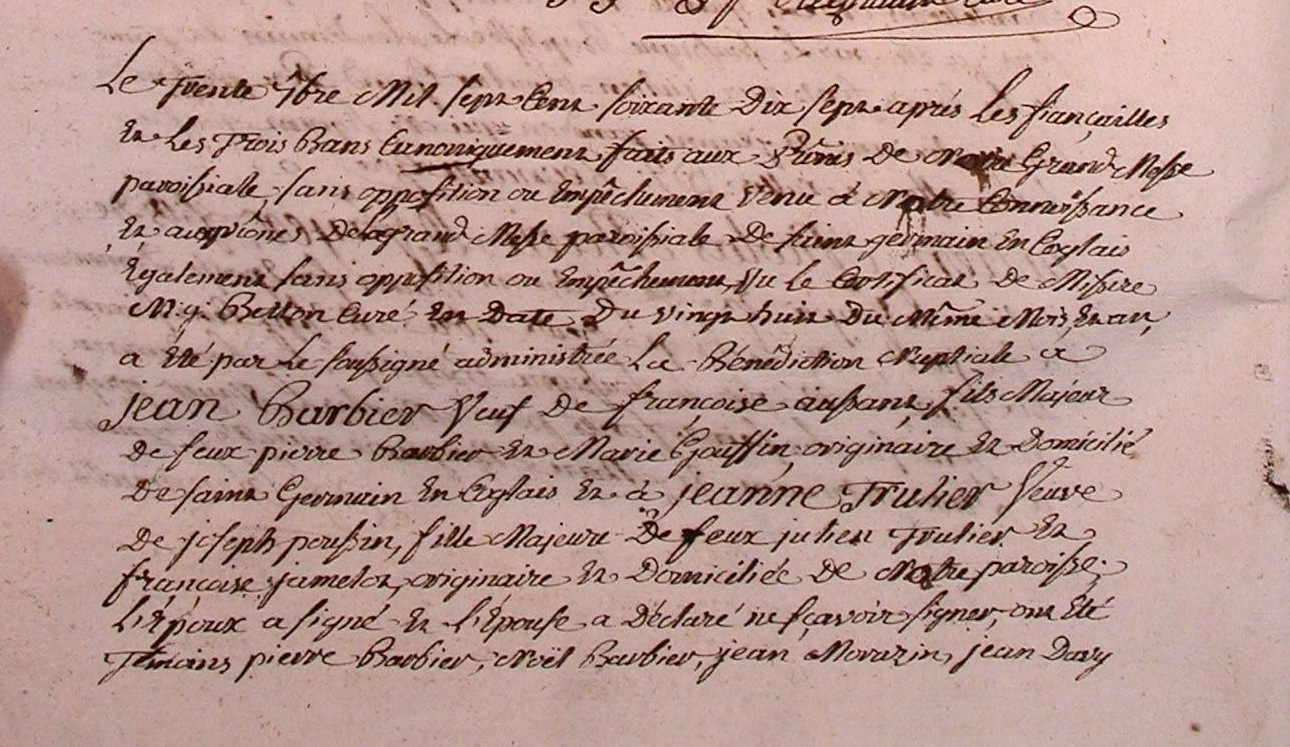 Le Trente 9bre Mil sept Cent soixante Dix sept après Les fiançailles
Et Les Trois Bans Canoniquement faits aux Prônes De Notre Grand Messe
paroissiale, sans opposition ou Empêchement Venu à Notre Connoissance
Et aux prônes De la grand Messe paroissiale De saint germain En Coglais
Egalement sans opposition ou Empêchement, Vu Le Certificat De Missire
M. j. Betton Curé En Date Du vingt huit Du Même Mois Et an,
a été par Le soussigné administrée La Bénédiction Nuptiale à
jean Barbier Veuf De françoise aussant, fils Majeur
De feux pierre Barbier Et Marie Gouffin, originaire Et Domicilié
De saint Germain En Coglais Et à jeanne Trulier Veuve
De joseph poussin, fille Majeure De feux julien Trulier Et
françoise jamelot, originaire Et Domiciliée De Notre paroisse;
L'Epoux a signé Et L'Epouse a Déclaré ne sçavoir signer, ont Eté
Témoins pierre Barbier, Noël Barbier, jean Morazin, jean Davy